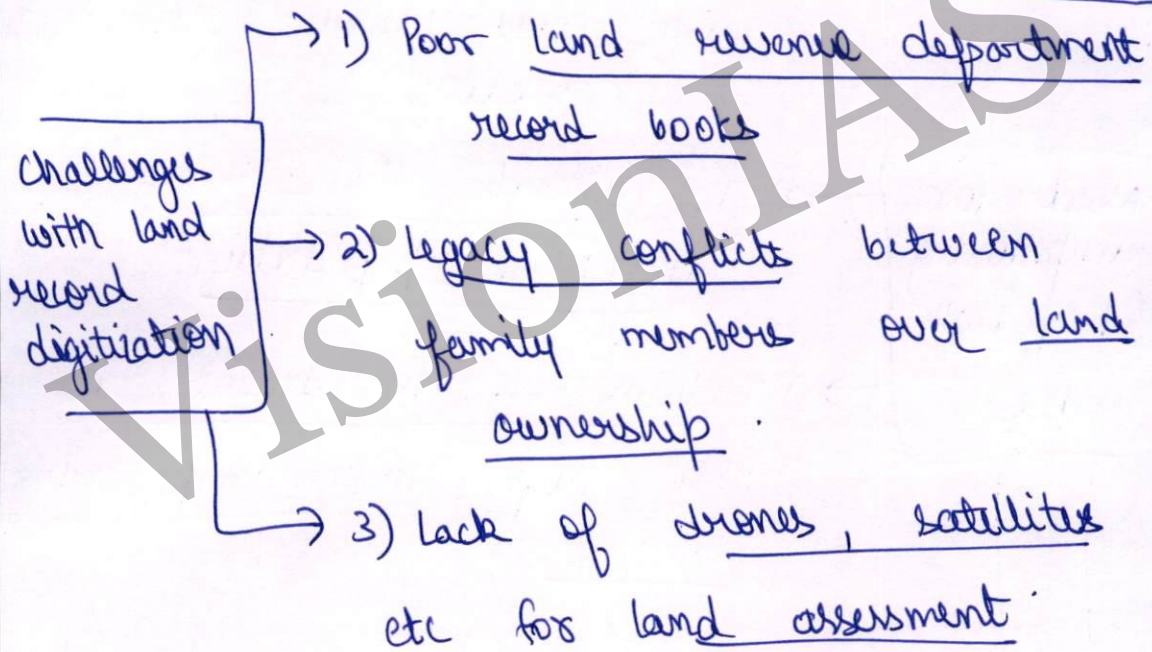 challenges
with land
record
digitization
1) Poor land revenue department
record books
2) legacy conflicts between
family members over land
ownership.
3) Lack of drones, satellites
etc for land assessment.
VisionIAS